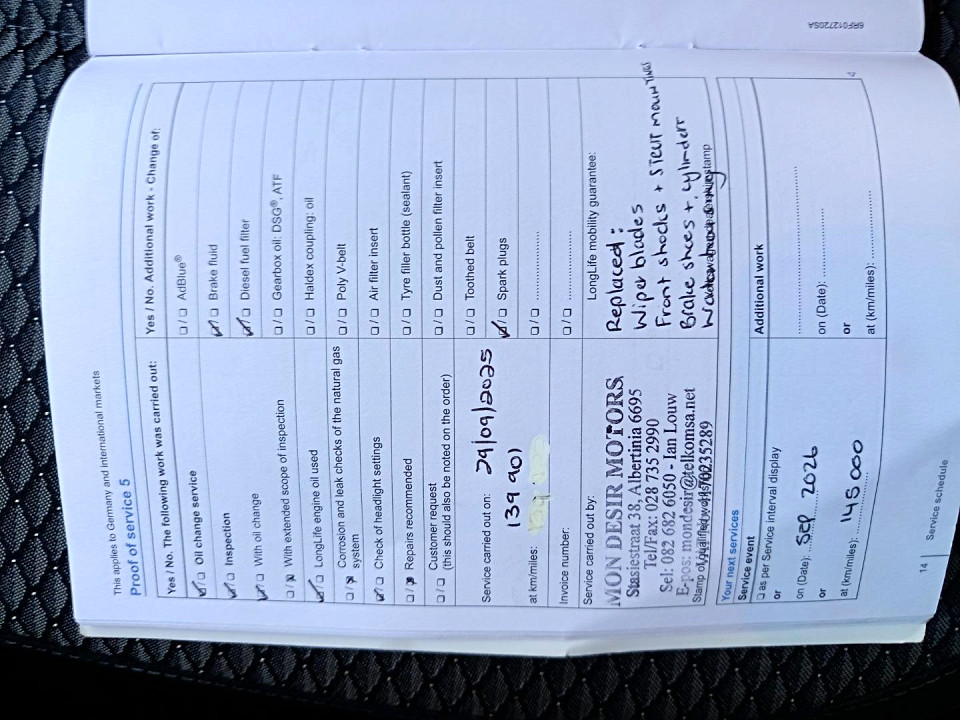 This applies to Germany and international markets
Proof of service 5
Yes / No. The following work was carried out:
☑/☐ Oil change service
☑/☐ Inspection
☑/☐ With oil change
☐/☒ With extended scope of inspection
☑/☐ LongLife engine oil used
☐/☒ Corrosion and leak checks of the natural gas
system
☑/☐ Check of headlight settings
☐/☒ Repairs recommended
☐/☐ Customer request
(this should also be noted on the order)
Service carried out on: 29/09/2025
139 901
at km/miles:
Invoice number:
Service carried out by:
MON DESIR MOTORS
Stasiestraat 38, Albertinia 6695
Tel/Fax: 028 735 2990
Sel: 082 682 6050 - Ian Louw
E-pos: mondesir@telkomsa.net
Stamp of qualified workshop
4170235289
Yes / No. Additional work - Change of:
☐/☐ AdBlue®
☑/☐ Brake fluid
☑/☐ Diesel fuel filter
☐/☐ Gearbox oil: DSG®, ATF
☐/☐ Haldex coupling: oil
☐/☐ Poly V-belt
☐/☐ Air filter insert
☐/☐ Tyre filler bottle (sealant)
☐/☐ Dust and pollen filter insert
☐/☐ Toothed belt
☑/☐ Spark plugs
☐/☐ ....................
☐/☐ ....................
LongLife mobility guarantee:
Replaced:
Wiper blades
Front shocks + STRUT MOUNTINGS
Brake shoes + cylinders
stamp
Your next services
Service event
☐ as per Service interval display
or
on (Date): SEP 2026
or
at (km/miles): 145 000
Additional work
....................
on (Date): ....................
or
at (km/miles): ....................
14 | Service schedule
6RF012720SA